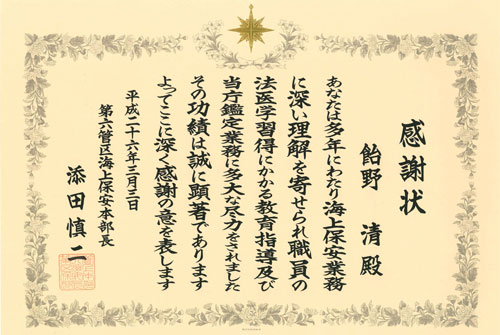 感謝状
飴野 清 殿
あなたは多年にわたり海上保安業務
に深い理解を寄せられ職員の
法医学習得にかかる教育指導及び
当庁鑑定業務に多大な尽力をされました
その功績は誠に顕著であります
よってここに深く感謝の意を表します
平成二十六年三月三日
第六管区海上保安本部長
添田慎二